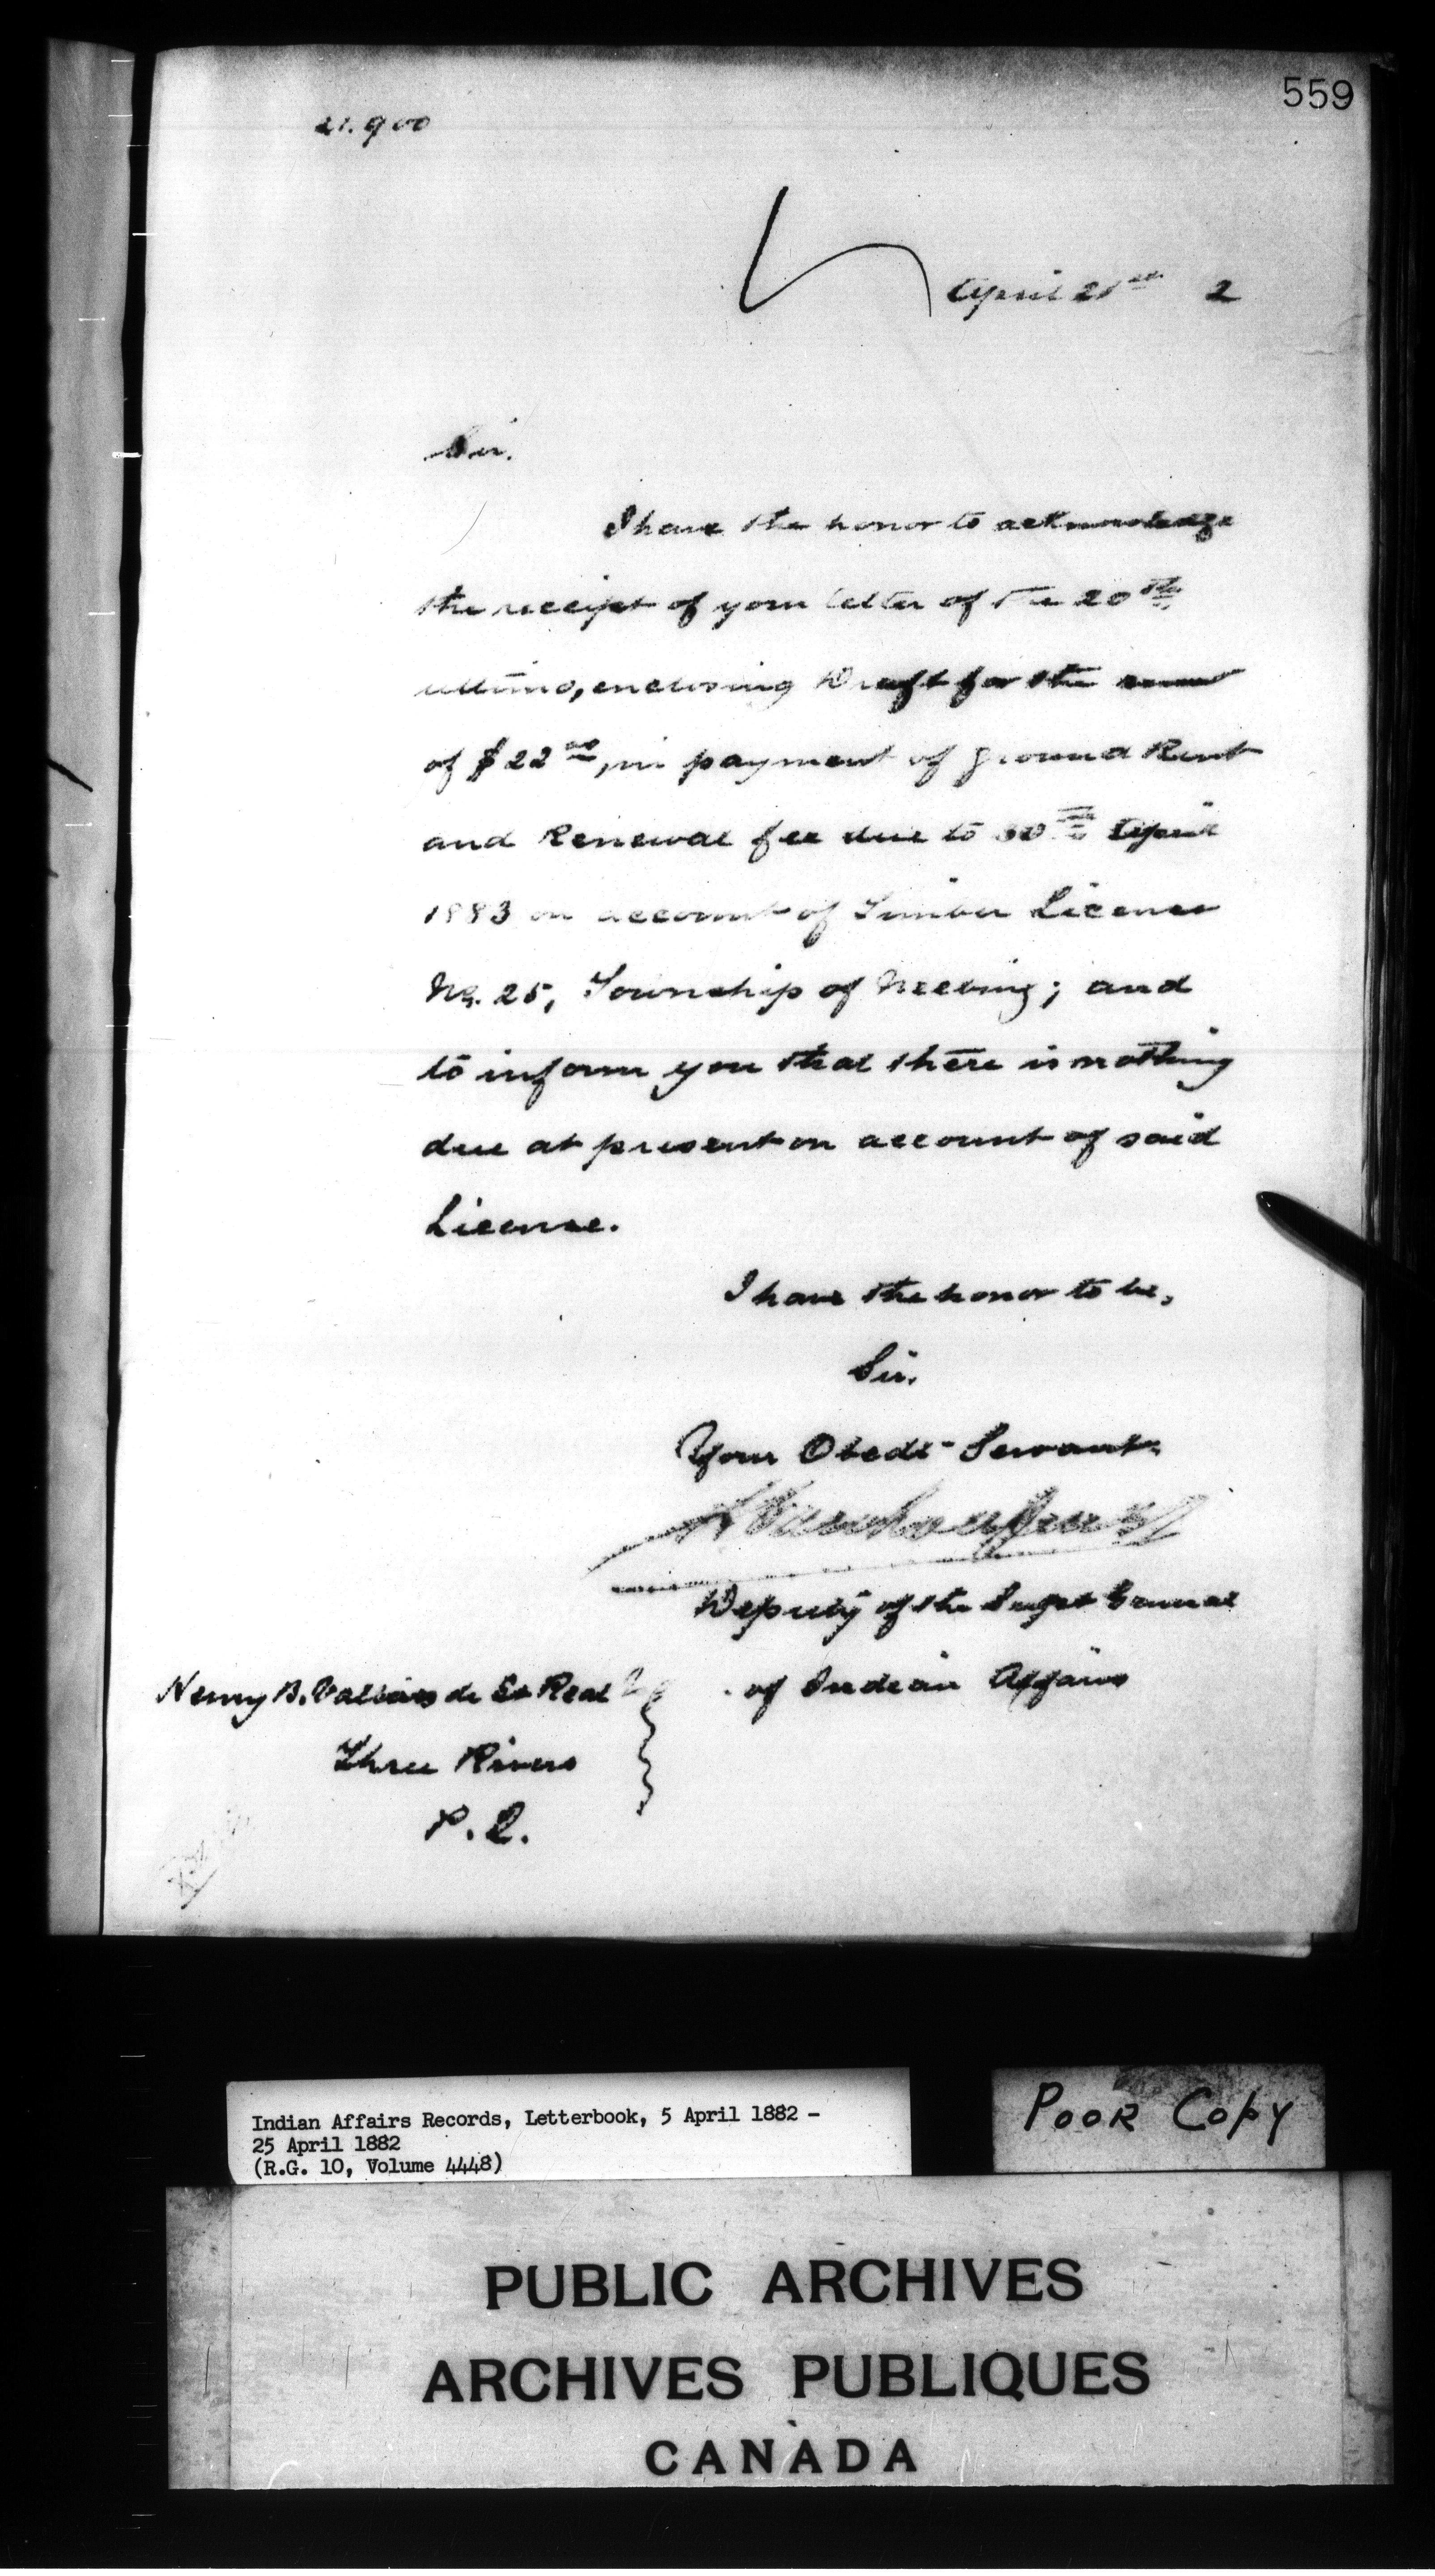 559
21.900
April 21st 2
Sir.
I have the honor to acknowledge
the receipt of your letter of the 20th
ultimo, enclosing Draft for the sum
of $22 00, in payment of ground Rent
and Renewal fee due to 30th April
1883 on account of Timber License
No. 25, Township of Neebing; and
to inform you that there is nothing
due at present on account of said
License.
I have the honor to be,
Sir.
Your Obedt Servant.
L Vankoughnet
Deputy of the Supt General
of Indian Affairs
Henry B. Vallieres de St Real
Three Rivers
P. Q.
Indian Affairs Records, Letterbook, 5 April 1882 -
25 April 1882
(R.G. 10, Volume 4448)
POOR COPY
PUBLIC ARCHIVES
ARCHIVES PUBLIQUES
CANADA